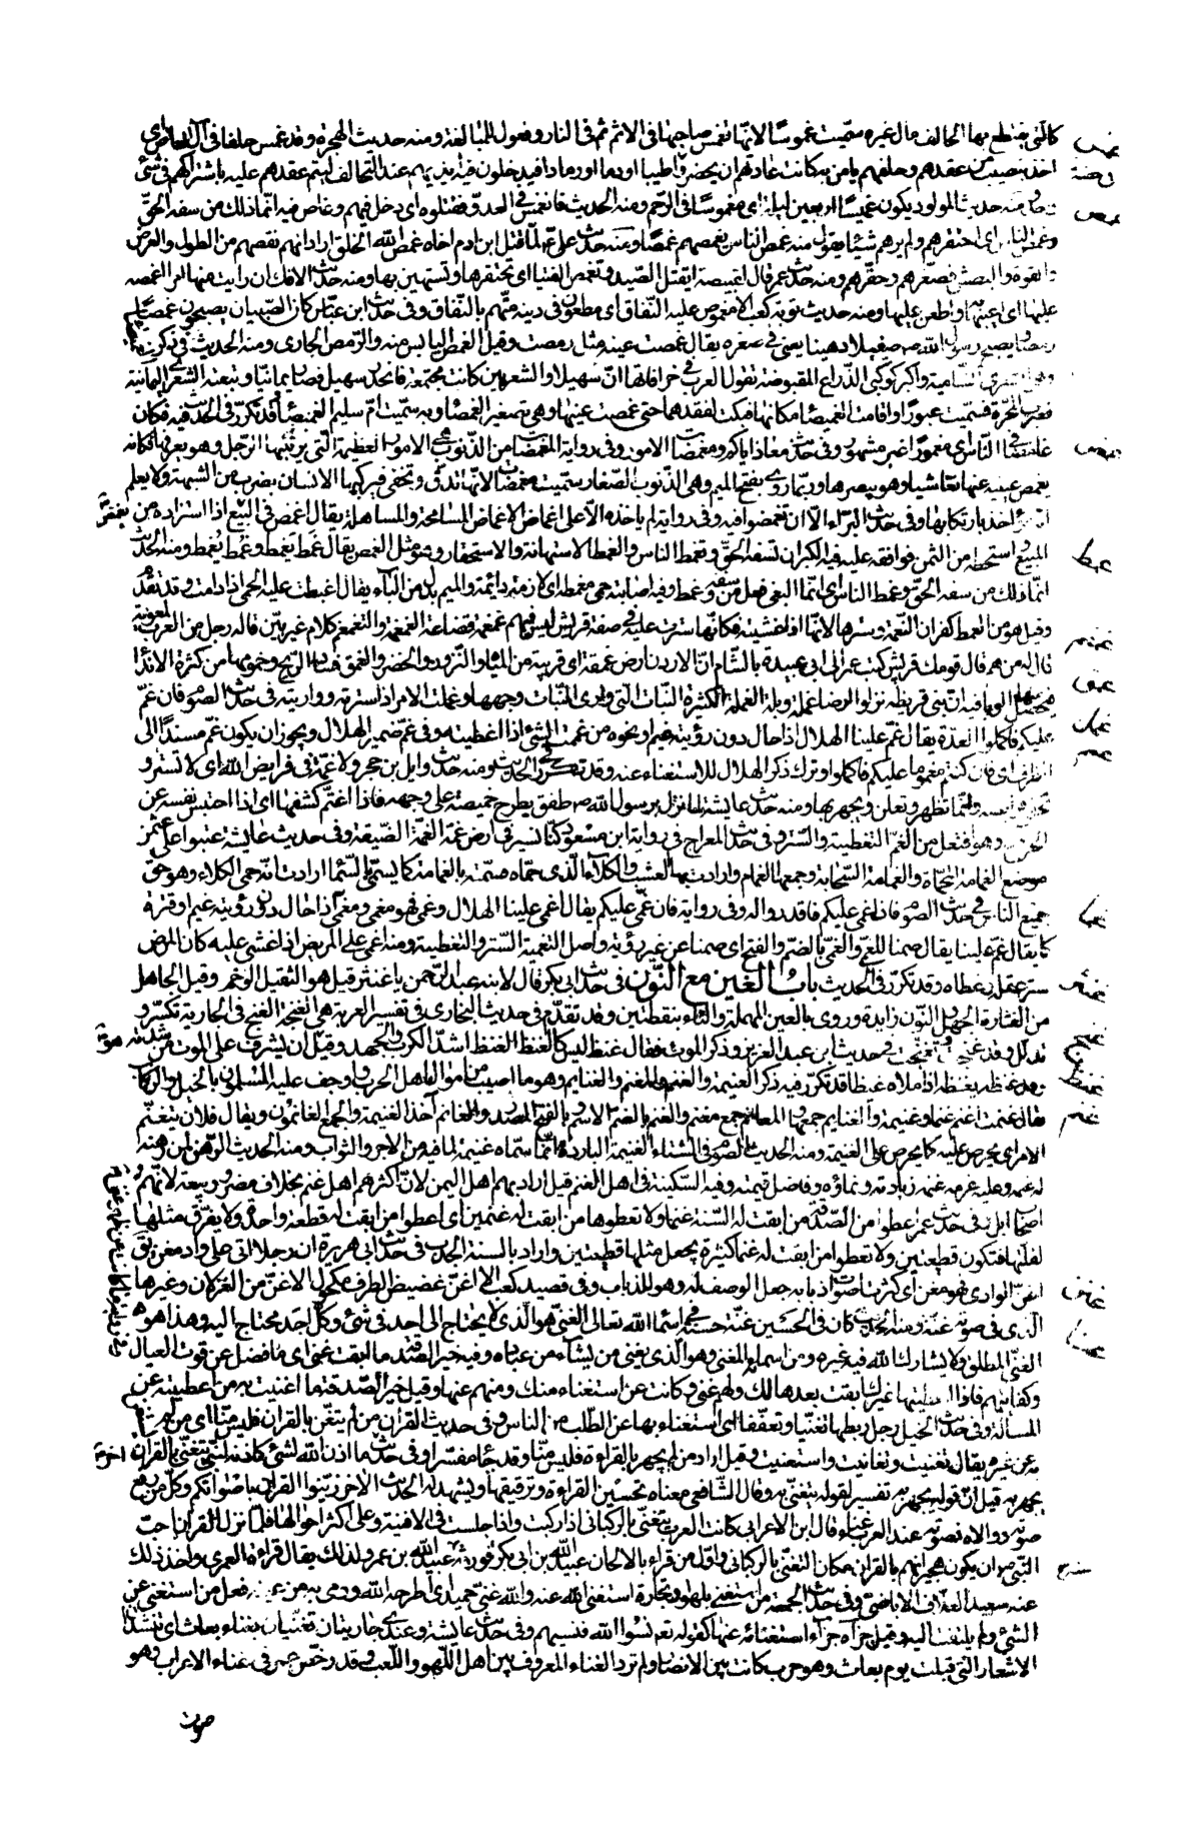 كالتى يقتطع بها الحالف مال غيره سميت غموسًا لانّها تغمس صاحبها فى الاثم ثم فى النار وفعول للمبالغة ومنه حديث الهجرة وقد غمس حلفا فى آل العاص اى
اخذ بنصيب من عقدهم وحلفهم يامن به كانت عادتهم ان يحضروا طيبا او دما او رمادا فيدخلون فيه ايديهم عند التحالف ليتم عقدهم عليه باشتراكهم فى شئ
ومنه حديث المولود يكون غميسًا اربعين ليلة اى مغموسًا فى الرحم ومنه الحديث فانغمس فى العدوّ فقتلوه اى دخل فيهم وغاص فيه انّما ذلك من سفه الحقّ
وغمص الناس اى احتقرهم ولم يرهم شيئا يقول منه غمص الناس يغمصهم غمصًا ومنه حديث علىّ لمّا قتل ابن ادم اخاه غمص الله الخلق اراد انهم نقصهم من الطول والعرض
والقوة والبطش فصغّرهم وحقّرهم ومنه حديث عمر قال لقبيصة اتقتل الصيد وتغمص الفتيا اى تحتقرها وتستهين بها ومنه حديث الافك ان رايت منها امرا اغمصه
عليها اى اعيبها به واطعن عليها ومنه حديث توبة كعب الا مغموص عليه النفاق اى مطعون فى دينه متّهم بالنّفاق وفى حديث ابن عبّاس كان الصبيان يصبحون غمصًا
رمصًا ويصبح رسول الله ص صقيلا دهينا يعنى فى صغره يقال غمصت عينه مثل رمصت وقيل الغمص اليابس منه والرّمص الجارى ومنه الحديث فى ذكر
وهى الشعرى الشّامية واكبر كوكبى الذّراع المقبوضة تقول العرب فى خرافاتها انّ سهيلا والشعريين كانت مجتمعة فانحدر سهيل فصار يمانيّا وتبعته الشعرى اليمانية
فعبرت المجرّة فسمّيت عبورًا واقامت الغميصا مكانها فبكت لفقدهما حتى غمصت عينها وهى تصغير الغمصا وبه سمّيت امّ سليم الغميصا قد تكرّر فى الحديث فيه فكان
غامضا فى النّاس اى مغمورًا غير مشهور وفى حديث معاذ اياكم ومغمضات الامور وفى رواية المغمضات من الذّنوب هى الامور العظيمة الّتى يركبها الرّجل وهو يعرفها فكانه
يغمض عينيه عنها تعاشيا وهو يبصرها وربّما روى بفتح الميم وهى الذّنوب الصّغار سمّيت مغمضات لانّها تدقّ وتخفى فيركبها الانسان بضرب من الشبهة ولا يعلم
انه مؤاخذ بارتكابها وفى حديث البراء الّا ان تغمضوا فيه وفى رواية لم ياخذه الّا على اغماض الاغماض المسامحة والمساهلة يقال اغمض فى البيع اذا استزاده من
المبيع واستحطه من الثمن فوافقه عليه فيه الكبر ان تسفه الحقّ وتغمط الناس والغمط الاستهانة والاستحقار وهو مثل الغمص يقال غمط يغمط وغمط يغمط ومنه الحديث
انّما ذلك من سفه الحقّ وغمط الناس اى انّما البغى فعل من سفه وغمط وفيه اصابته حمى مغمطة اى لازمة دائمة والميم بدل من الباء يقال اغبطت عليه الحمى اذا دامت وقد تقدّم
وقيل هو من الغمط كفران النعمة وسترها لانّها اذا غشيته فكانّها سترت عليه فى صفة قريش ليس فيهم غمغمة قضاعة الغمغمة والتغمغم كلام غير بيّن قاله رجل من العرب لمعوية
قال له من هم قال قومك قريش كتب عمر الى ابى عبيدة بالشّام انّ الاردن ارض غمقة اى قريبة من المياه والنّزوز والخضر والغمق فساد الرّيح وخمومها من كثرة الانداء
فيحصل منها الوباء فيه ان بنى قريظة نزلوا ارضا غملة وبلة الغملة الكثيرة النّبات الّتى وارى النّبات وجهها وغملت الامر اذا سترته وواريته فى حديث الصّوم فان غمّ
عليكم فاكملوا العدّة يقال غمّ علينا الهلال اذا حال دون رؤيته غيم او نحوه من غممت الشئ اذا غطيته وفى غمّ ضمير الهلال ويجوز ان يكون غمّ مسندًا الى
الظرف اى فان كنتم مغموما عليكم فاكملوا وترك ذكر الهلال للاستغناء عنه وقد تكرّر فى الحديث ومنه حديث وايل بن حجر ولا غمّة فى فرايض الله اى لا تستر و
تخفى فرايضه وانّما تظهر وتعلن ويجهر بها ومنه حديث عايشة لمّا نزل برسول الله ص طفق يطرح خميصة على وجهه فاذا اغتمّ كشفها اى اذا احتبس نفسه عن
الخروج وهو افتعل من الغمّ التغطية والستر وفى حديث المعراج فى رواية ابن مسعود كنّا نسير فى ارض غمّة الغمّة الضّيقة وفى حديث عايشة عتبوا على عثمن
موضع الغمامة المحماة والغمامة السّحابة وجمعها الغمام وارادت بها العشب والكلاء الّذى حماه فسمّته بالغمامة كما يسمّى بالسّماء ارادت انّه حمى الكلاء وهو حقّ
جميع الناس فى حديث الصّوم فان اغمى عليكم فاقدروا له وفى رواية فان غمى عليكم يقال اغمى علينا الهلال وغمى فهو مغمى ومغمى اذا حال دون رؤيته غيم او قترة
كما يقال غمّ علينا يقال صمنا للغمّى والغمّى بالضم والفتح اى صمنا عن غير رؤية واصل التغمية السّتر والتغطية ومنه اغمى على المريض اذا غشى عليه كان المرض
ستر عقله وغطاه وقد تكرّر فى الحديث باب الغين مع النّون فى حديث ابى بكر قال لابنه عبد الرّحمن يا غنثر قيل هو الثقيل الوخم وقيل الجاهل
من الغثارة الجهل والنّون زايدة وروى بالعين المهملة والتّاء بنقطتين وقد تقدّم فى حديث البخارى فى تفسير العربة هى الغنجة الغنج فى الجارية تكسّر و
تدلّل وقد غنجت وتغنّجت فى حديث ابن عبد العزيز وذكر الموت فقال غنظ ليس كالغنظ الغنظ اشدّ الكرب والجهد وقيل ان يشرف على الموت من
وقد غنظه يغنظه اذا ملاه غيظا قد تكرّر فيه ذكر الغنيمة والغنم والمغنم والغنايم وهو ما اصيب من اموال اهل الحرب واوجف عليه المسلمون بالخيل والركاب
يقال غنمت اغنم غنما وغنيمة والغنايم جمعها والمغانم جمع مغنم والغنم بالضم الاسم وبالفتح المصدر والغانم آخذ الغنيمة والجمع الغانمون ويقال فلان يتغنّم
الامر اى يحرص عليه كما يحرص على الغنيمة ومنه الحديث الصّوم فى الشتاء الغنيمة الباردة انّما سمّاه غنيمة لما فيه من الاجر والثواب ومنه الحديث الرّهن لمن رهنه
له غنمه وعليه غرمه غنمه زيادته ونماؤه وفاضل قيمته وفيه السّكينة فى اهل الغنم قيل اراد بهم اهل اليمن لانّ اكثرهم اهل غنم بخلاف مضر وربيعة لانّهم
اصحاب ابل فى حديث عمر اعطوا من الصّدقة من ابقت له السّنة غنما ولا تعطوها من ابقت له غنمين اى اعطوا من ابقت له قطعة واحدة ولا يفرّق مثلها
لقلّتها فتكون قطعتين ولا تعطوا من ابقت له غنما كثيرة يجعل مثلها قطعتين واراد بالسنة الجدب فى حديث ابى هريرة ان رجلا اتى على واد مغنّ يقال
اغنّ الوادى فهو مغنّ اى كثرت اصوات ذبابه جعل الوصف له وهو للذباب وفى قصيد كعب الا اغنّ غضيض الطرف مكحول الاغنّ من الغزلان وغيرها
الّذى فى صوته غنّة ومنه الحديث كان فى الحسين غنّة حسنة فى اسماء الله تعالى الغنىّ هو الّذى لا يحتاج الى احد فى شئ وكلّ احد محتاج اليه وهذا هو
الغنىّ المطلق ولا يشارك الله فيه غيره ومن اسمائه المغنى وهو الّذى يغنى من يشاء من عباده وفيه خير الصّدقة ما ابقت غنى اى ما فضل عن قوت العيال
وكفايتهم فاذا اعطيتها غيرك ابقت بعدها لك ولهم غنى وكانت عن استغناء منك ومنهم عنها وقيل خير الصّدقة ما اغنيت به من اعطيته عن
المسالة وفى حديث الخيل رجل ربطها تغنّيا وتعفّفا اى استغناء بها عن الطّلب من الناس وفى حديث القرآن من لم يتغنّ بالقرآن فليس منّا اى من لم يستغن
به عن غيره يقال تغنّيت وتغانيت واستغنيت وقيل اراد من لم يجهر بالقراءة فليس منّا وقد جاء مفسّرا وفى حديث ما اذن الله لشئ كاذنه لنبى يتغنّى بالقرآن
يجهر به قيل انّ قوله يجهر به تفسير لقوله يتغنّى به وقال الشّافعى معناه تحسين القراءة وترقيقها ويشهد له الحديث الاخر زيّنوا القرآن باصواتكم وكلّ من رفع
صوته ووالاه فصوته عند العرب غناء قال ابن الاعرابى كانت العرب تتغنّى بالركبانى اذا ركبت واذا جلست فى الافنية وعلى اكثر احوالها فلمّا نزل القرآن احبّ
النّبى ص ان يكون هجيراهم بالقرآن مكان التغنّى بالركبانى واوّل من قراء بالالحان عبيد الله بن ابى بكرة فورثه عبيد الله بن عمر ولذلك يقال قراءة العمرى واخذ ذلك
عنه سعيد العلّاف الاباضى وفى حديث الجمعة من استغنى بلهو او تجارة استغنى الله عنه والله غنىّ حميد اى اطرحه الله ورمى به من عينه فعل من استغنى عن
الشئ ولم يلتفت اليه وقيل جزاه جزاء استغنائه عنها كقوله تعالى نسوا الله فنسيهم وفى حديث عايشة وعندى جاريتان تغنّيان بغناء بعاث اى تنشدان
الاشعار التى قيلت يوم بعاث وهو حرب كانت بين الانصار ولم ترد الغناء المعروف بين اهل اللّهو واللّعب وقد رخّص عمر فى غناء الاعراب وهو
صوت